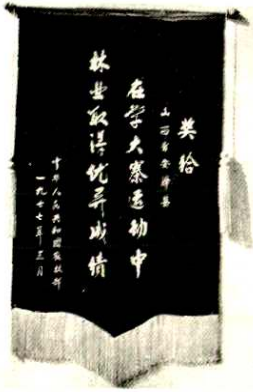 奖给
山西省安泽县
在学大寨运动中
林业取得优异成绩
中华人民共和国农林部
一九七七年三月